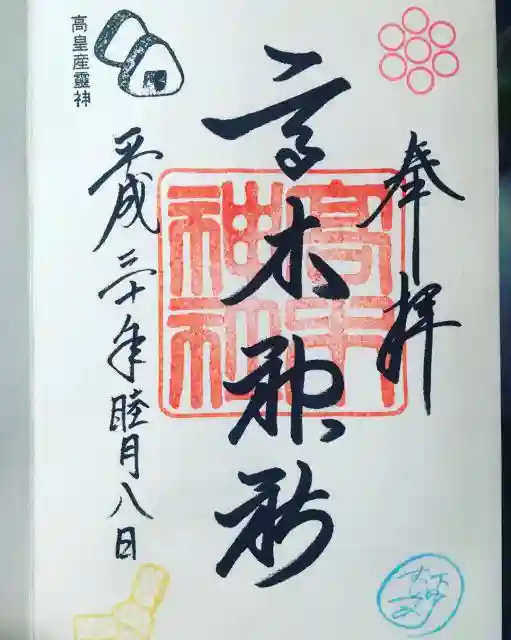 奉拝
高木神社
高木神社
平成三十年睦月八日
高皇産靈神